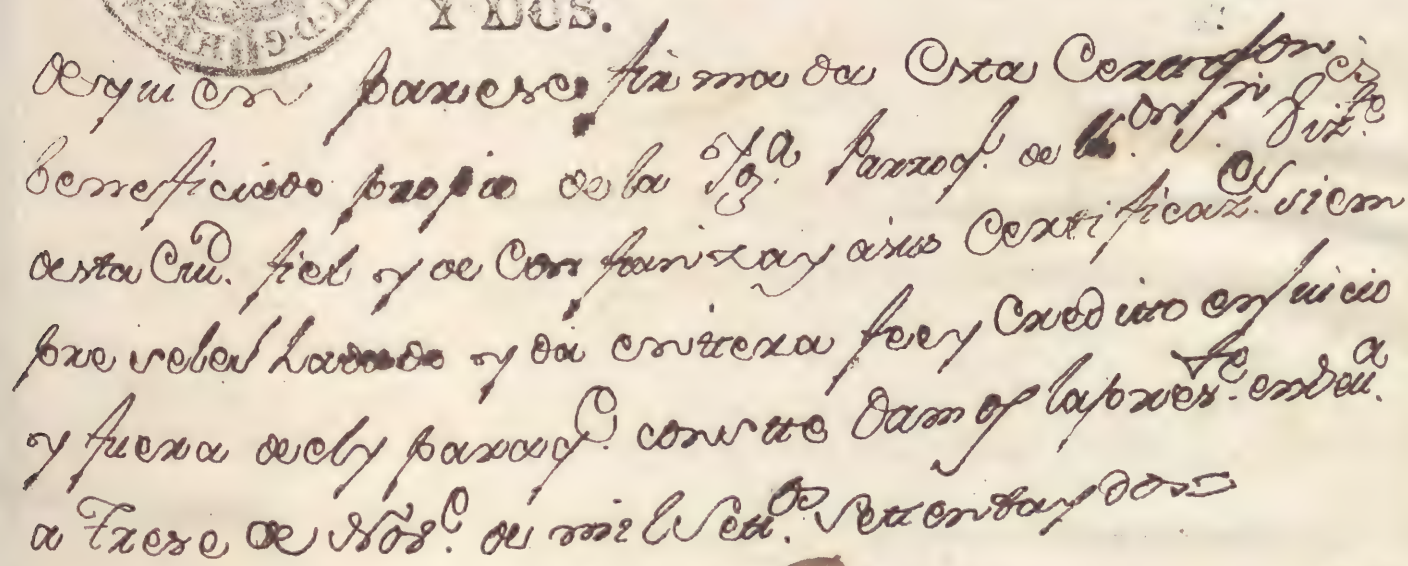 Y DOS.
de quien paresce firmada esta Certificon es
beneficiado propio de la Ygª Parroql. de Sn Vizte
desta Ciud. fiel y de confianza y a sus Certificazes siem
pre seles ha dado y da entera fee y Credito en juicio
y fuera de el y para qe. conste damos la preste. en Sevª.
a Treze de Nobe. de mil Settos. settenta y dos=